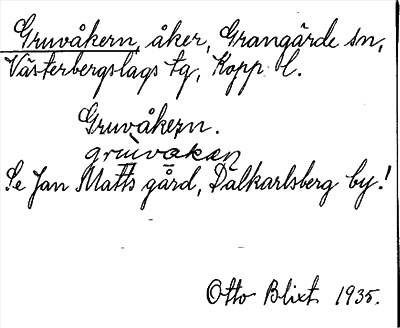 Gruvåkern, åker, Grangärde sn,
Västerbergslags tg, Kopp. l.
Gruvåkern.
gru̇vakæn
Se Jan Matts gård, Dalkarlsberg by!
Otto Blixt 1935.